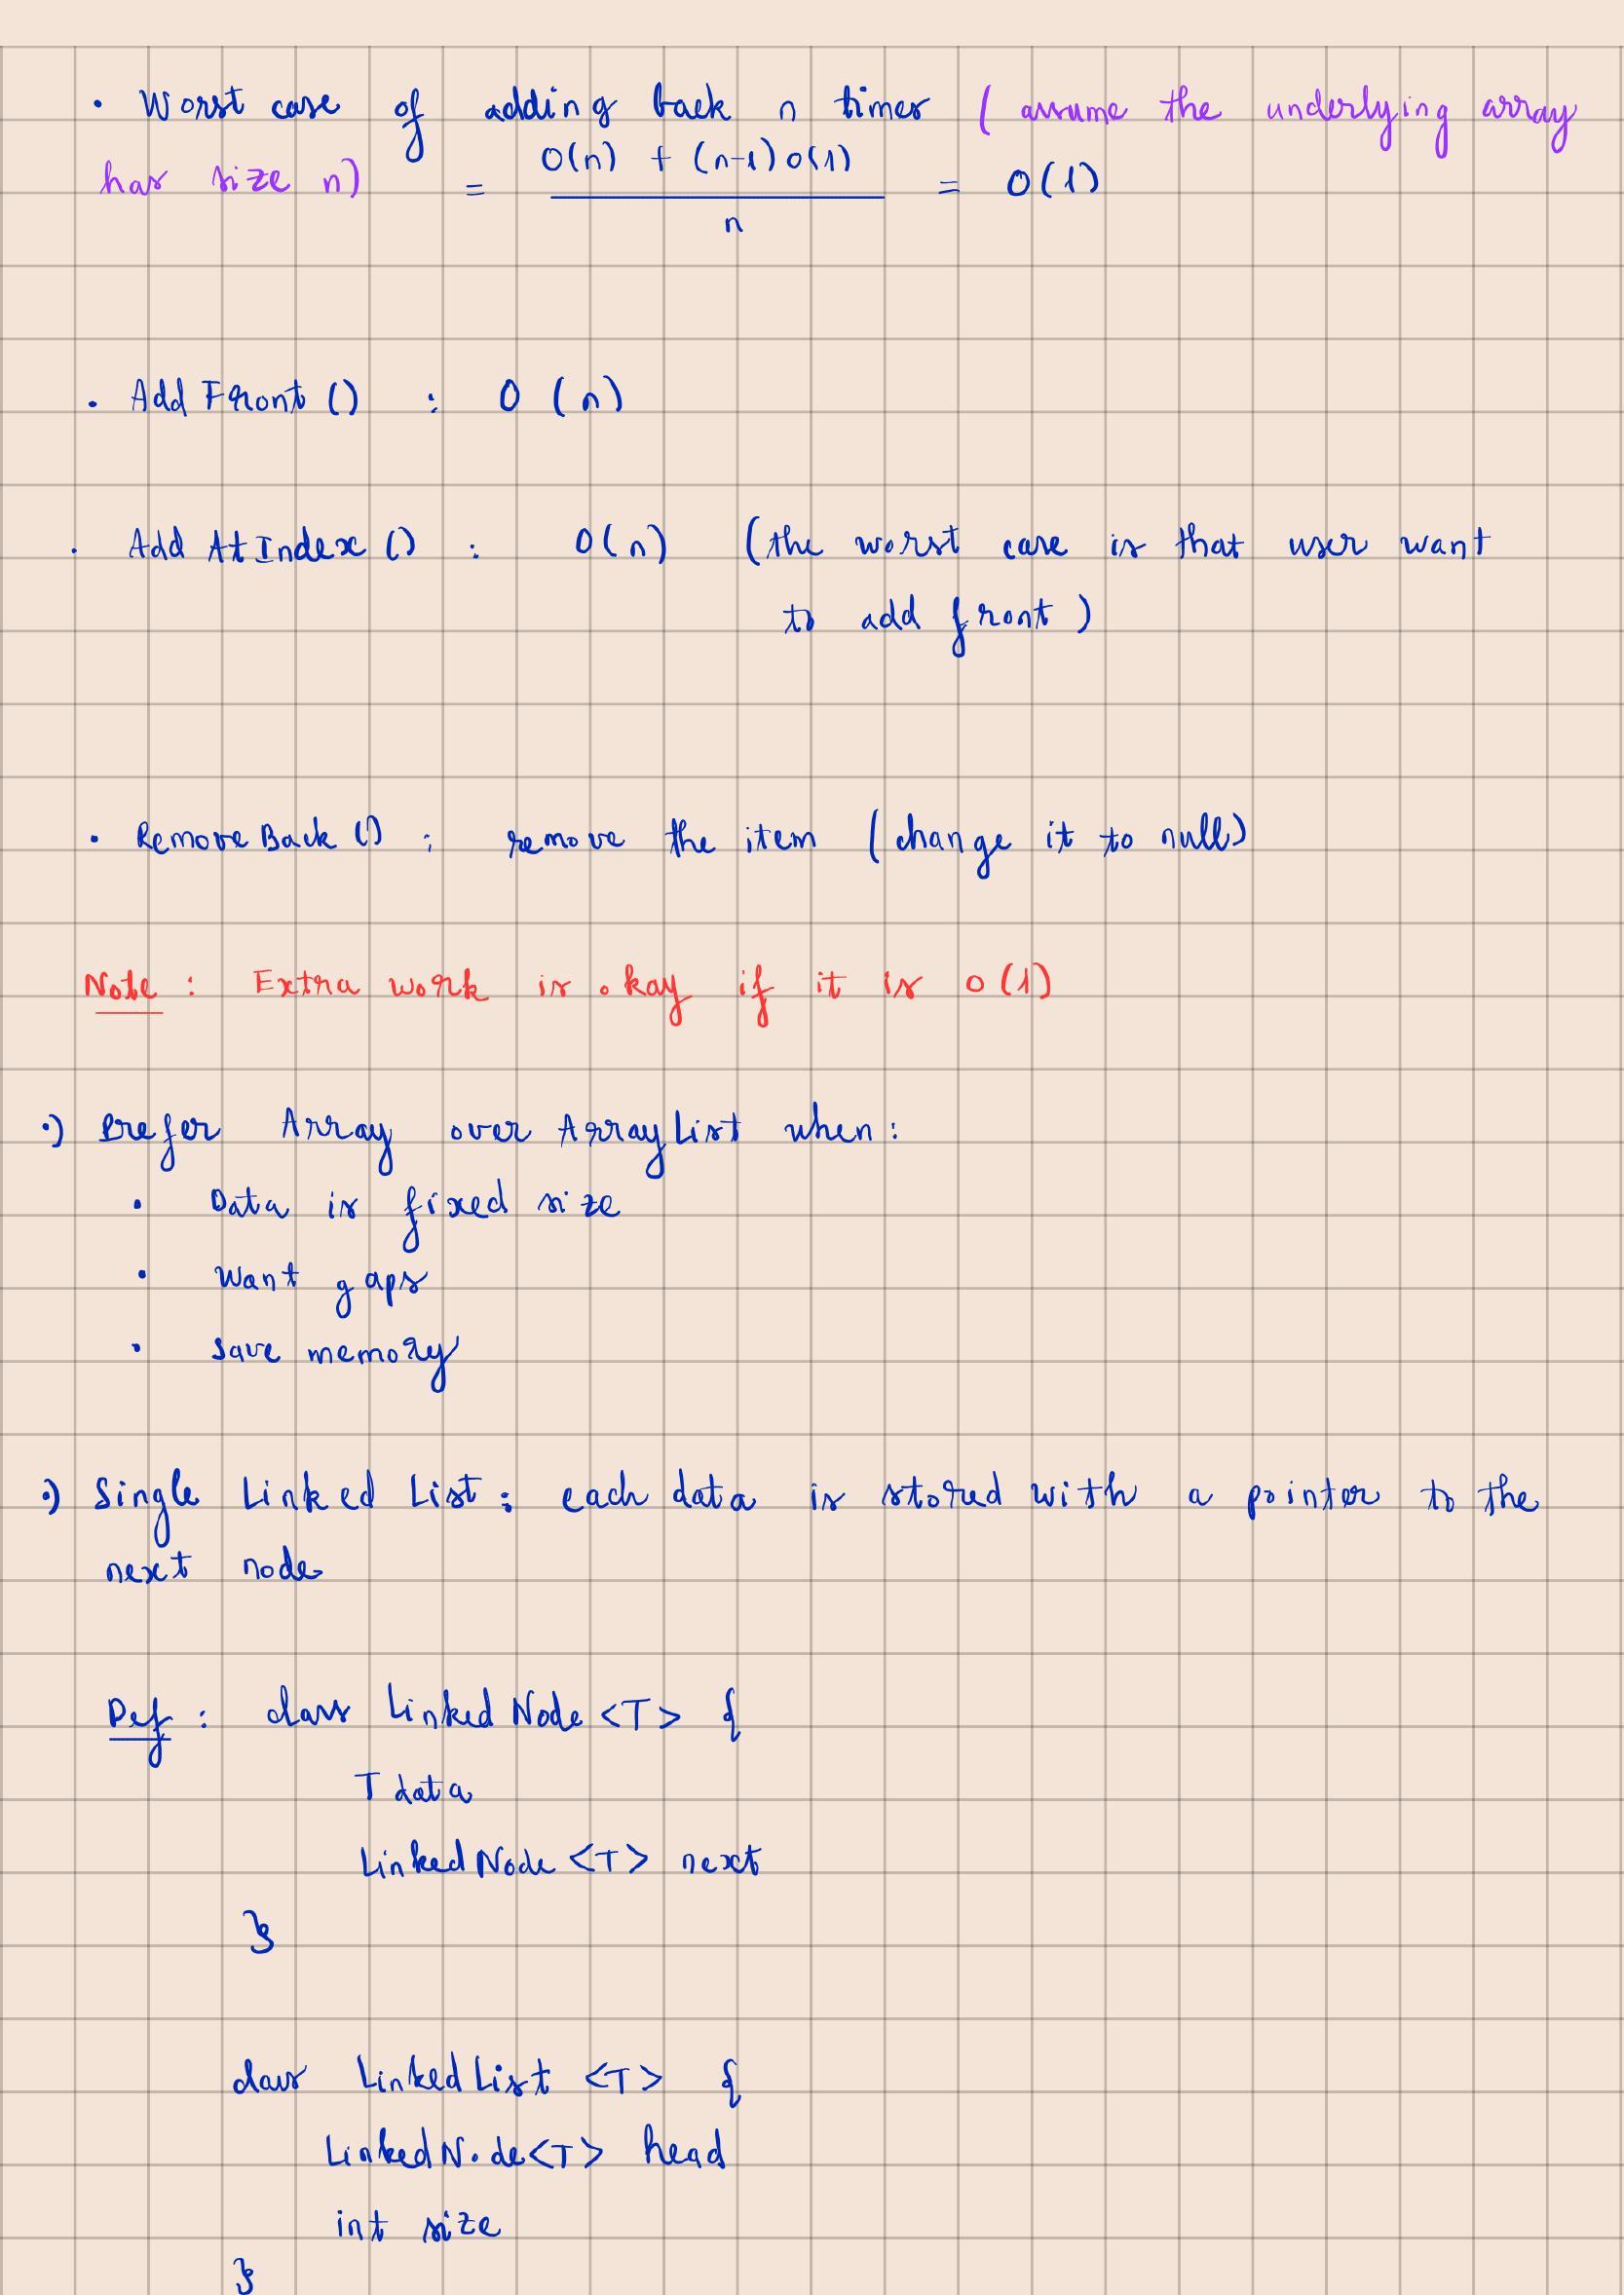 • Worst case of adding back n times (assume the underlying array
has size n) = (O(n) + (n-1)O(1)) / n = O(1)
• Add Front () : O (n)
• Add AtIndex () : O(n) (the worst case is that user want
to add front)
• Remove Back () : remove the item (change it to null)
Note : Extra work is okay if it is O(1)
•) Prefer Array over ArrayList when:
• Data is fixed size
• Want gaps
• Save memory
•) Single Linked List : each data is stored with a pointer to the
next node
Def : class Linked Node <T> {
T data
Linked Node <T> next
}
class Linked List <T> {
Linked Node <T> head
int size
}